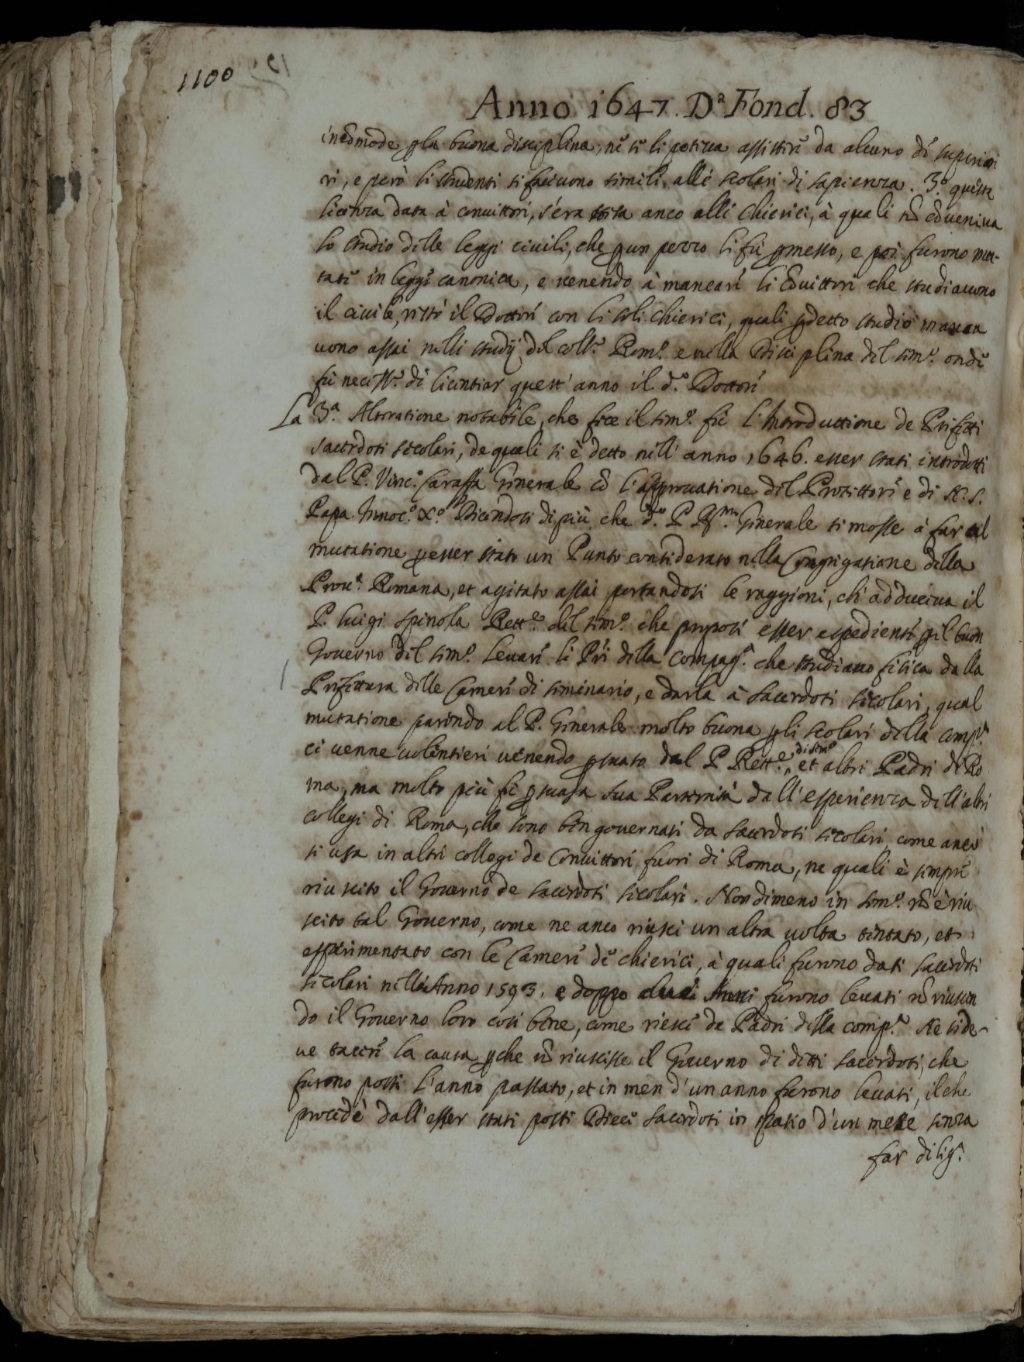 1100
Anno 1647. Dª Fond. 83
incõmode p la buona disciplina, ne se li poteva assistere da alcuno de superio
ri, e però li studenti si facevono simili alli scolari di sapienza. 3º queste
licenza data à convittori, s'era stesa anco alli Chierici, à quali nõ cõveniva
lo studio delle leggi civili, che p un pezzo li fù pmesso, e poi furono mu-
tate in legge canonica, e venendo à mancare li Cõvittori che studiavono
il civile, restò il Dottore con li soli Chierici, quali p detto studio manca
vono assai nelli studij del coll.º Rom.º e nella Disciplina del sem.º onde
fù necess.º di licentiar quest' anno il d.º Dottore
La 3.ª Alteratione notabile, che fece il sem.º fù l'Introduttione de Prefetti
sacerdoti secolari, de quali si è detto nell' anno 1646. esser stati introdotti
dal P. Vinc.º Caraffa Generale cõ l'approvatione del Protettore e di N. S.
Papa Innoc.º X.º Dicendosi di più che d.º P. Rm.º Generale si mosse à far tal
mutatione p esser stato un Punto considerato nella Congregatione della
Prov.ª Romana, et agitato assai portandosi le raggioni, ch' adduceva il
P. Luigi Spinola Rett.º del sem.º che propose esser espediente p il buon
Governo del sem.º levare li Pri della Compag.ª che studiavo fisica dalla
Prefettura delle Camere di seminario, e darla à Sacerdoti secolari, qual
mutatione parendo al P. Generale molto buona p li scolari della comp.ª
ci venne volentieri venendo psuaso dal P. Rett.º di sem.º et altri Padri di Ro
ma, ma molto più fù psuasa sua Paternità dall' esperienza dell' altri
collegi di Roma, che sono ben governati da Sacerdoti secolari, come anco
si usa in altri collegi de Convittori fuori di Roma, ne quali è sempre
riuscito il Governo de sacerdoti secolari. Nondimeno in sem.º nõ è riu
scito tal Governo, come ne anco riuscì un altra volta tentato, et
esperimentato con le Camere de chierici, à quali furono dati sacerdoti
secolari nell' Anno 1593. e doppo furono levati nõ riuscen
do il Governo loro così bene, come riesce de Padri della comp.ª Ne si de-
ve tacere la causa p che nõ riuscisse il Governo di detti Sacerdoti, che
furono posti l'anno passato, et in men d'un anno furono levati, il che
procedè dall' esser stati posti Dieci Sacerdoti in spatio d'un mese senza
far dilig.ª